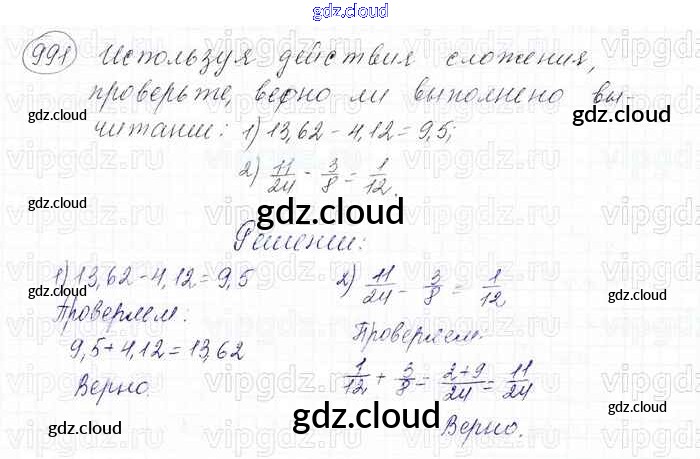 gdz.cloud
991 Используя действия сложения,
проверьте, верно ли выполнено вы-
читание: 1) 13,62 - 4,12 = 9,5;
2) 11/24 - 3/8 = 1/12.
Решение:
1) 13,62 - 4,12 = 9,5
Проверяем:
9,5 + 4,12 = 13,62
Верно.
2) 11/24 - 3/8 = 1/12
Проверяем:
1/12 + 3/8 = 2+9/24 = 11/24
Верно.
gdz.cloud
gdz.cloud
gdz.cloud
gdz.cloud
gdz.cloud
gdz.cloud
gdz.cloud
gdz.cloud
gdz.cloud
vipgdz.ru